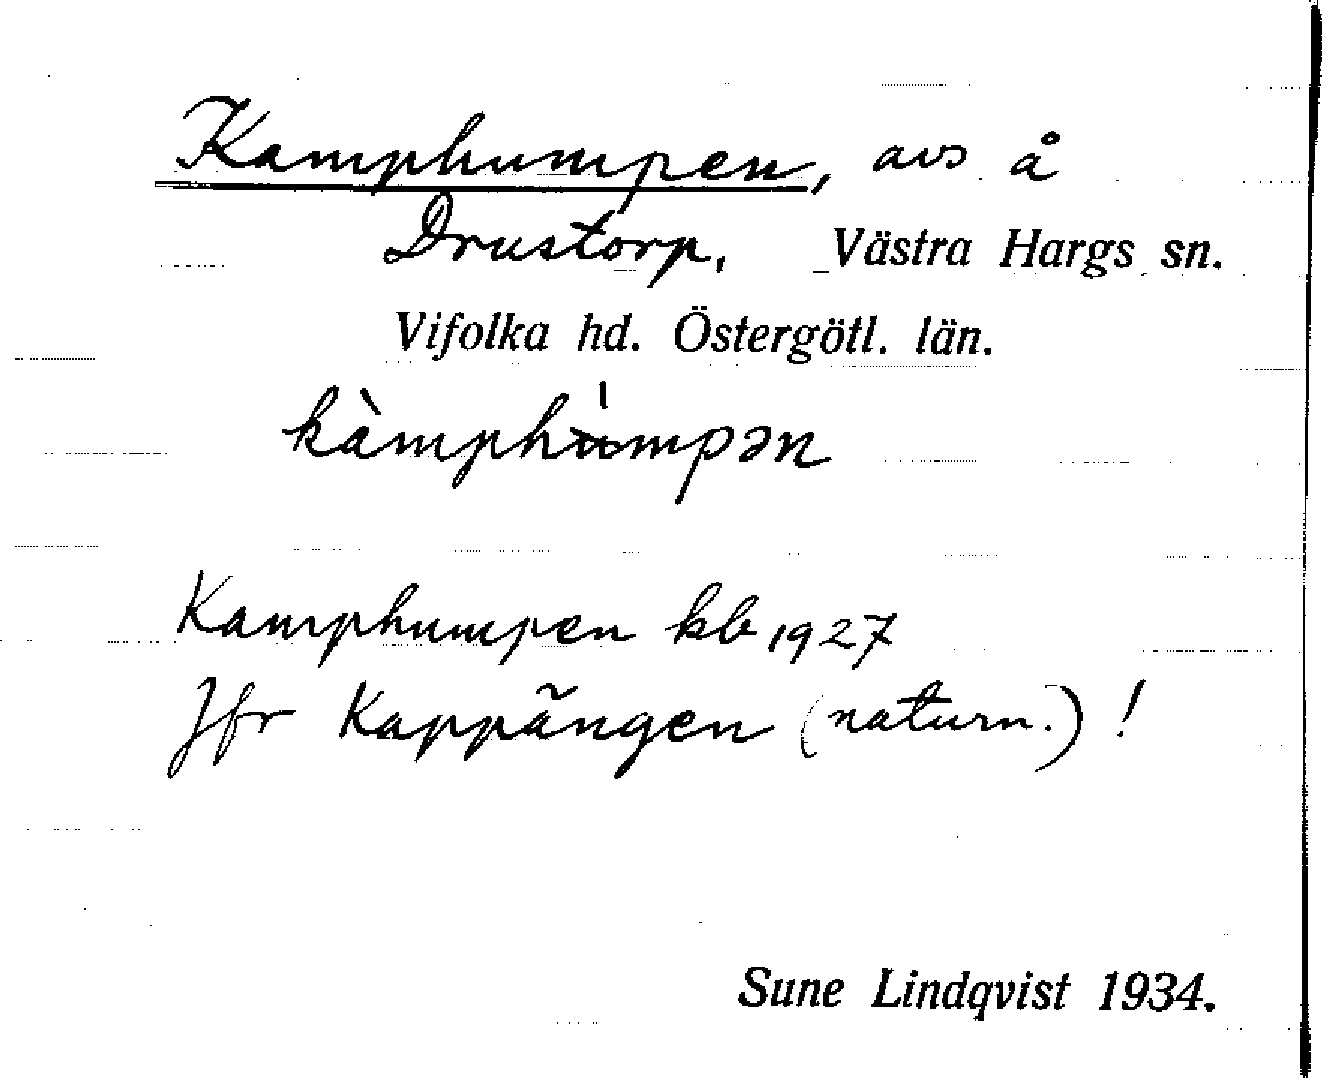 Kamphumpen, avs å
Drustorp, Västra Hargs sn.
Vifolka hd. Östergötl. län.
kàmphʉ̀mpən
Kamphumpen kb 1927
Jfr Kappängen (naturn.) !
Sune Lindqvist 1934.